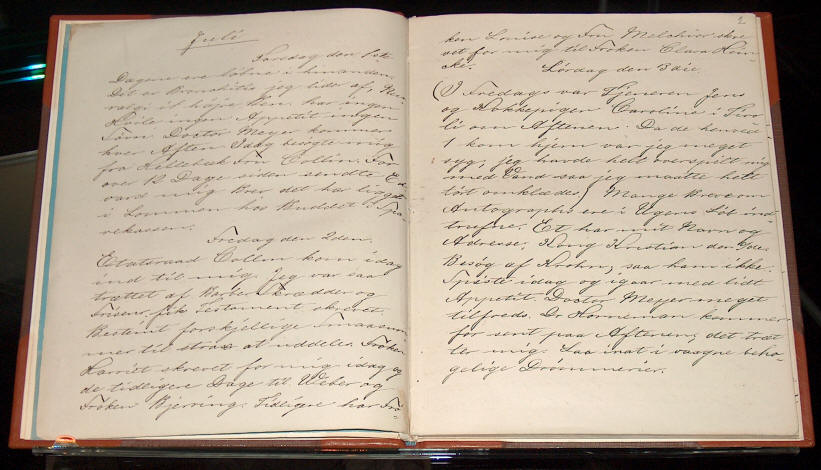 Juli
Torsdag den 1ste
Dagene ere løbne i hinanden.
Det er Bronchitis jeg lider af,
ralgi i højre Ben. Har ingen
Hvile ingen Appetit ingen
Søvn. Doctor Meyer kommer
hver Aften Idag besøgte mig
fra Hellebæk Fru Collin. For
over 12 Dage siden sendte Ed-
vard mig Brev det har ligget
i Lommen hos Budet i
Fredag den 2den.
Etatsraad Collin kom idag
ind til mig. Jeg var saa
trættet af Barber, Skrædder og
Friseur, fik Testament skrevet.
Bestemt forskjellige Smaasum-
mer til strax at uddeles. Frøken
Harriet skrevet for mig idag og
de tidligere Dage til Weber og
Frøken Bjerring. Tidligere har Frø-
2
ken Louise og Fru Melchior skre
vet for mig til Frøken Clara Hein-
ke.
Lørdag den 3die.
(I Fredags var Tjeneren Jens
og Kokkepigen Caroline i Tivo-
li om Aftenen. Da de henved
1 kom hjem var jeg meget
syg, jeg havde helt overspilt mig
med Vand saa jeg maatte helt
løst omklædes) Mange Breve om
Autographs ere i Ugens Løb ind
trufne. Et har mit Navn og
Adresse, Kong Kristian den
Besøg af Krohn, saa ham ikke.
Spiste idag og igaar med lidt
Appetit. Doctor Meyer meget
tilfreds. Dr. Horneman kommer
for sent paa Aftenen; det træt
ter mig. Laa inat i vaagne beha-
gelige Drømmerier.